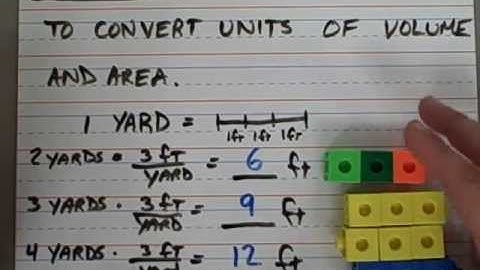 TO CONVERT UNITS OF VOLUME
AND AREA.
1 YARD =
1ft 1ft 1ft
2 YARDS · 3 fT / YARD = 6 ft
3 YARDS · 3 fT / YARD = 9 ft
4 YARDS · 3 fT / YARD = 12 ft